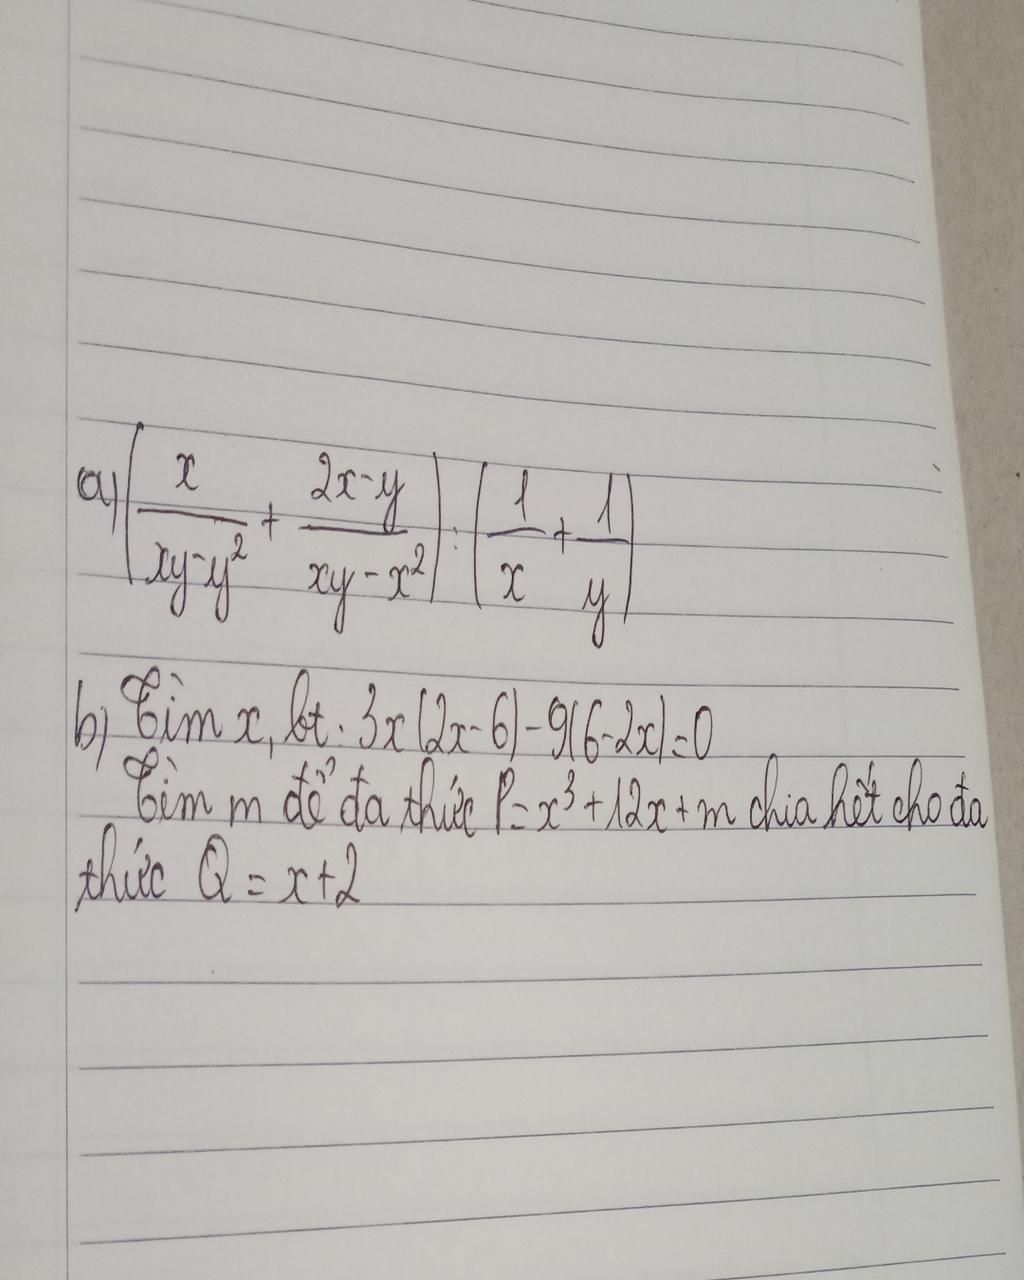 a) (x/(xy-y²) + (2x-y)/(xy-x²)) : (1/x + 1/y)
b) Tìm x, bt: 3x(2x-6)-9(6-2x)=0
Tìm m để đa thức P=x³+12x+m chia hết cho đa
thức Q=x+2